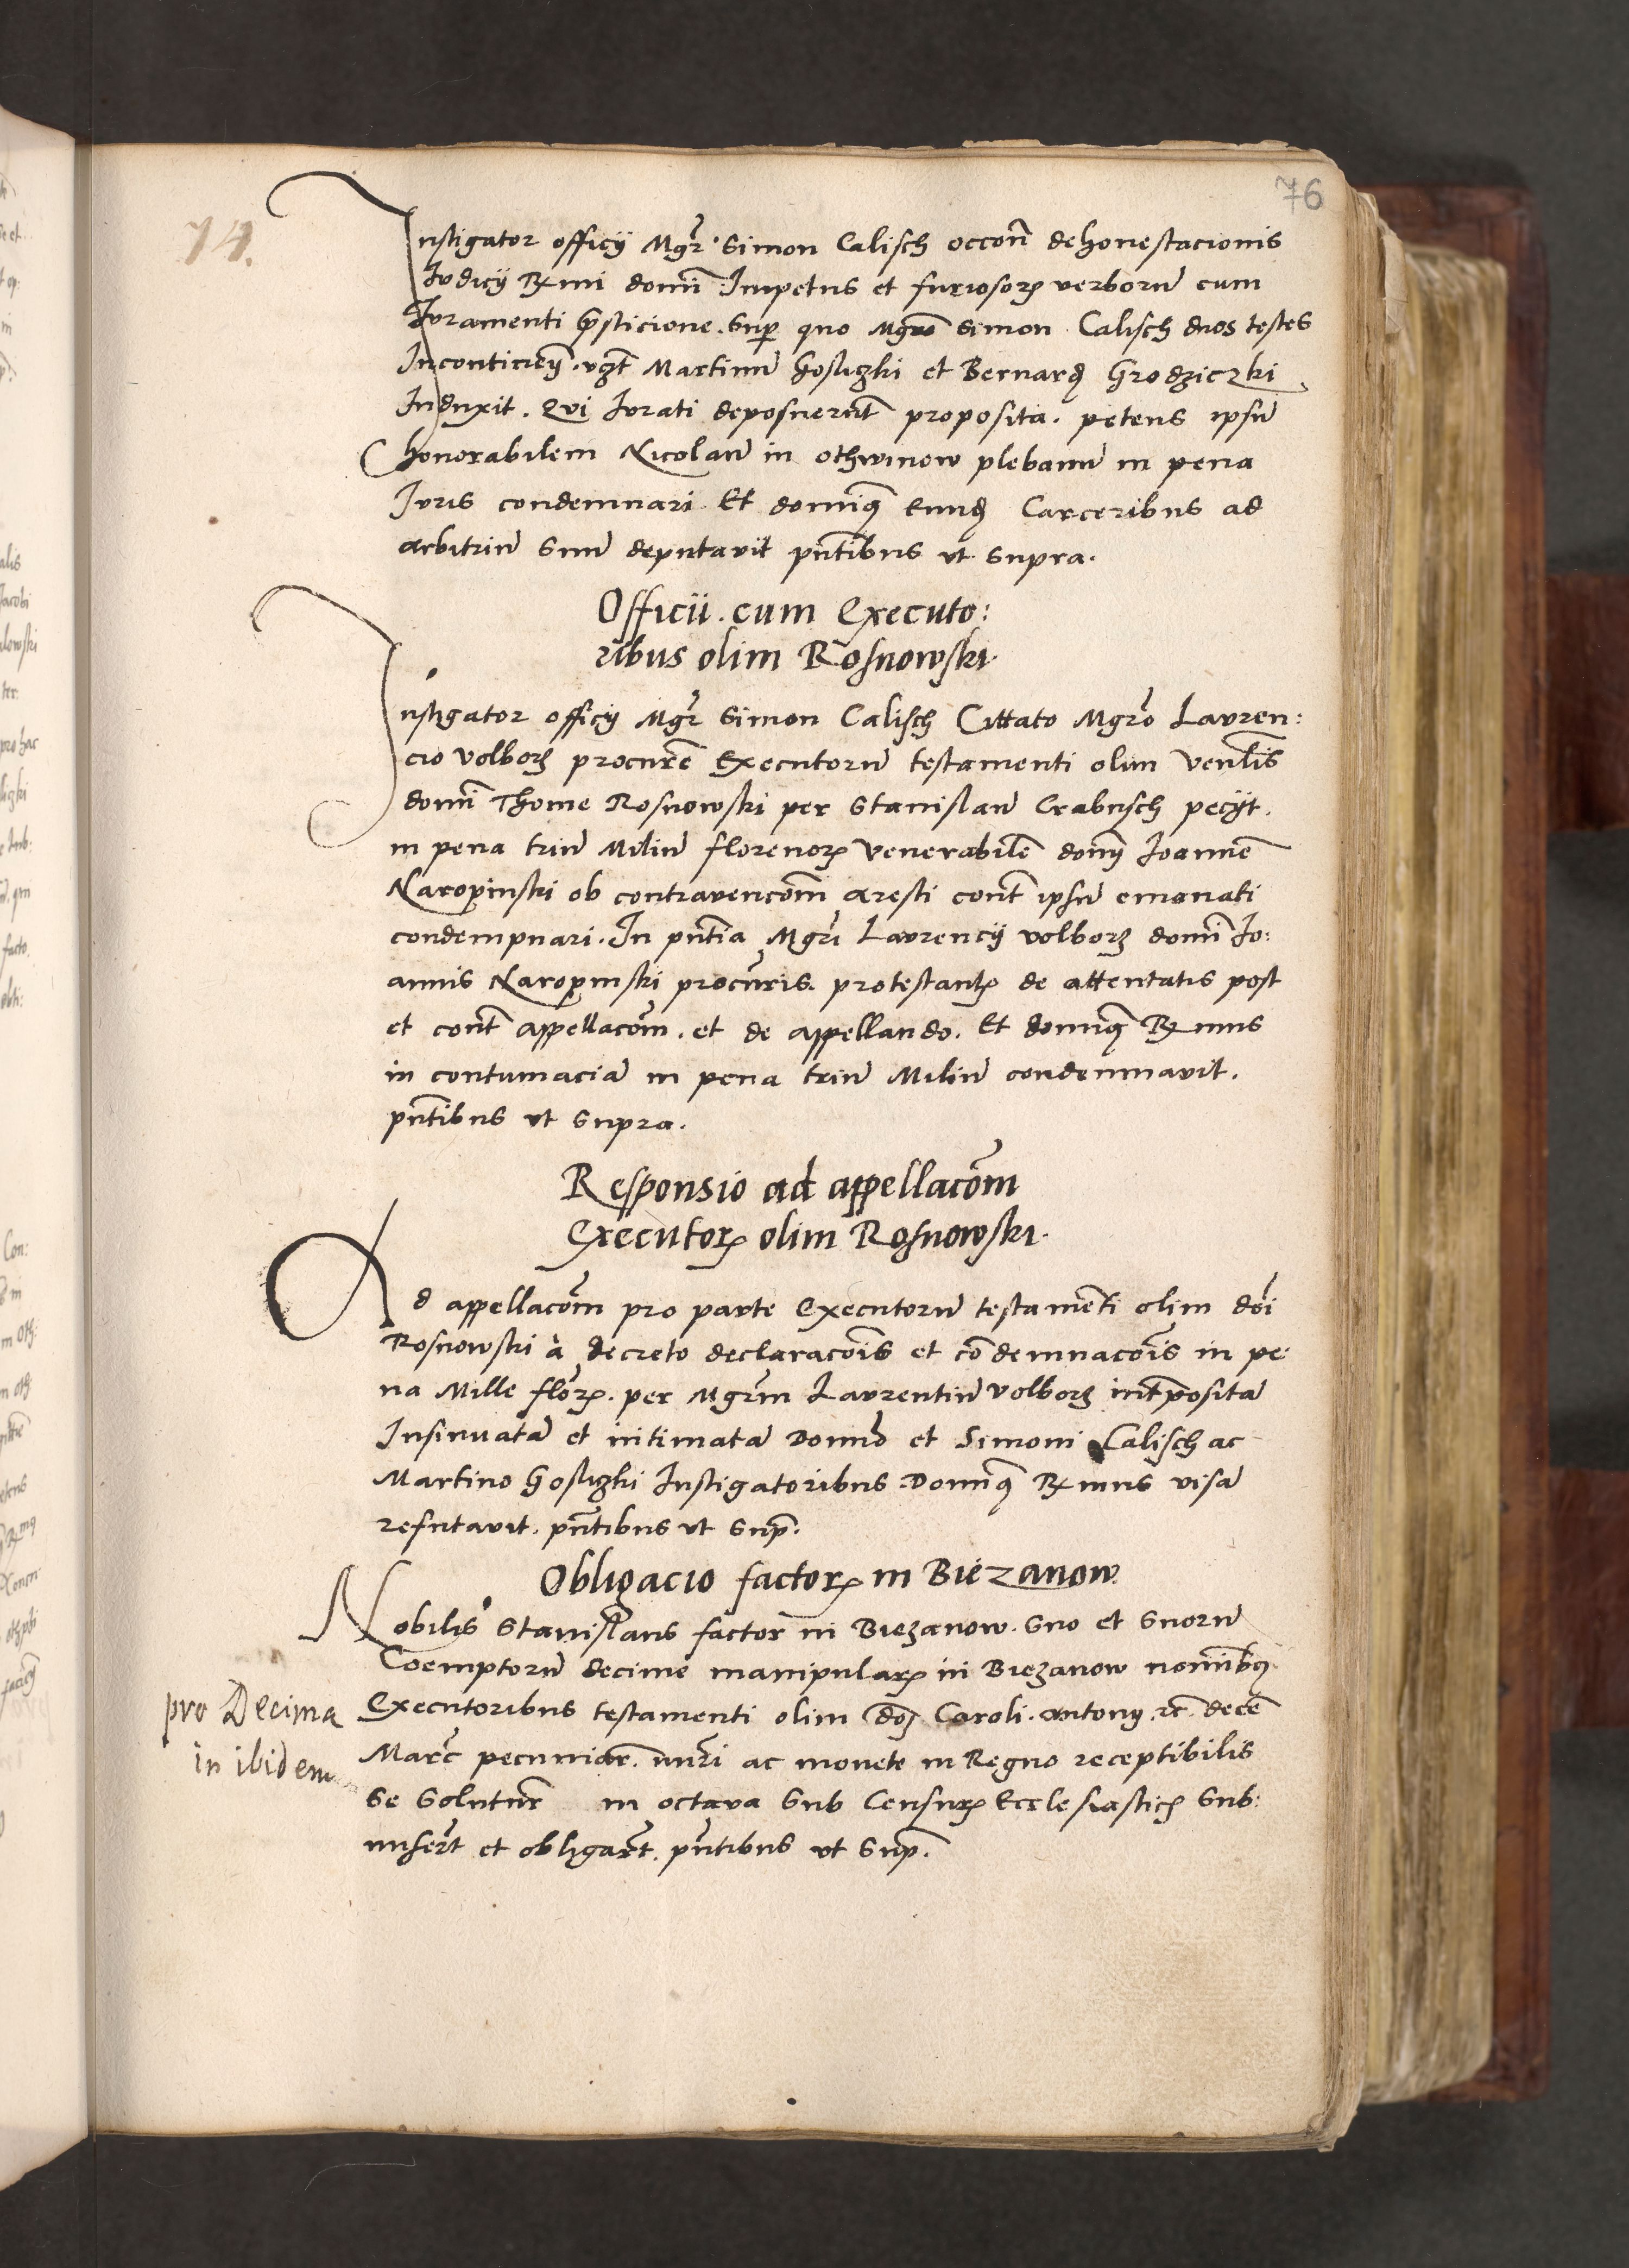 76
74.
Instigator officij Mgr̃ Simon Calisch occoñ dehonestacionis
Iudicij Rx̃mi domĩ Impetus et furiosorꝫ verborũ cum
Iuramenti p̃sticione. Sup̱ quo Mgrõ Simon Calisch duos testes
Incontinẽ. vꝫt Martinũ Gosliczki et Bernardꝫ Grodziczki
Induxit. Qui Iurati deposuerũt proposita. petens ipsũ
honorabilem Nicolaũ in othwinow plebanũ in pena
Iuris condemnari. Et domiꝰ eundꝫ Carceribus ad
arbitriũ Suũ deputavit pñtibus vt supra.
Officii cum Executo:
ribus olim Rosnowski.
Instigator officij Mgr̃ Simon Calisch Cittato Mgrõ Lauren:
cio Volborꝫ procurẽ Executorũ testamenti olim Venlĩs
domĩ Thome Rosnowski per Stanislaũ Crabusch pecijt.
in pena triũ Miliũ florenorꝫ Venerabilẽ domĩ Ioannẽ
Naropinski ob contravencõm aresti cont̃ ipsũ emanati
condempnari. In pñtia Mgrĩ Laurencij Volborꝫ domĩ Io:
annis Naropinski procũris protestantꝭ de attentatis post
et cont̃ appellacõm. et de appellando. Et domiꝰ Rx̃mus
in contumaciã in pena triũ Miliũ condemnavit.
pñtibus vt supra.
Responsio ad appellacõm
Executorꝫ olim Rosnowski.
Ad appellacõm pro parte Executorũ testamenti olim dñi
Rosnowski à decreto declaracõis et cõdemnacõis in pe
na Mille florꝫ. per Mgrm̃ Laurentiũ Volborꝫ int̃positã
Insinuatã et intimatã Domnõ et Simoni Calisch ac
Martino Gosliczki Instigatoribus. Domiꝰ Rx̃mus visã
refutavit. pñtibus vt sup̃.
Obligacio factorꝫ in Biezanow.
Nobilis Stanislaus factor in Biezanow. Suo et Suorũ
Coemptorũ decime manipularꝫ in Biezanow nomĩbꝫ.
pro Decima
in ibidem
Executoribus testamenti olim dñi Caroli Antonij ꝛc̃. decẽ
Marc̃ pecuniar̃. nũri ac monete in Regno receptibilis
Se Soluturũ in octava Sub Censurꝭ Ecclesiasticꝭ Sub:
misert̃ et obligart̃. pñtibus vt sup̃.